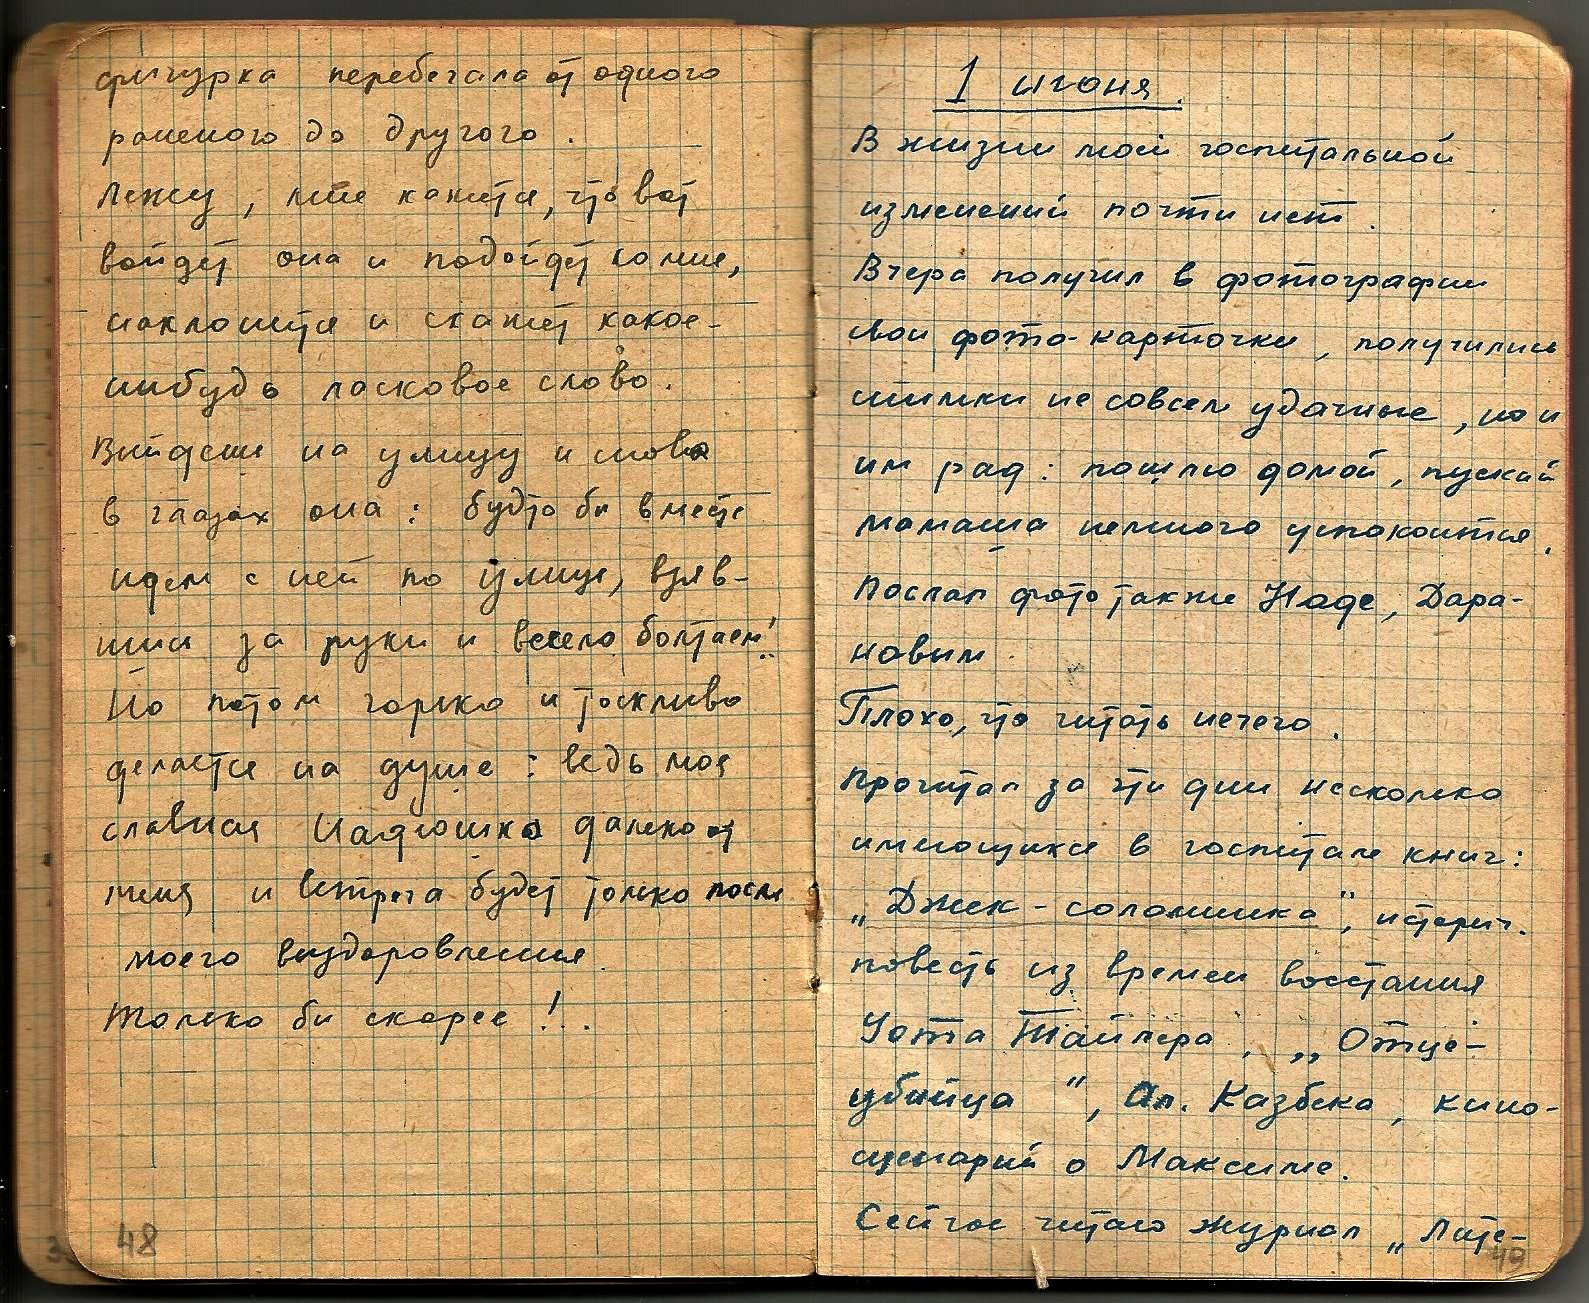 фигурка перебегала от одного
раненого до другого.
Лежу, мне кажется, что вот
войдет она и подойдет ко мне,
наклонится и скажет какое-
нибудь ласковое слово.
Выйдешь на улицу и снова
в глазах она: будто бы вместе
идем с ней по улице, взяв-
шись за руки и весело болтаем!..
Но потом горько и тоскливо
делается на душе: ведь моя
славная Надюшка далеко от
меня и встреча будет только после
моего выздоровления.
Только бы скорее!..
48
1 июня.
В жизни моей госпитальной
изменений почти нет.
Вчера получил в фотографии
свои фото-карточки, получились
снимки не совсем удачные, но и
им рад: пошлю домой, пускай
мамаша немного успокоится.
Послал фото также Наде, Дара-
новым.
Плохо, что читать нечего.
Прочитал за эти дни несколько
имеющихся в госпитале книг:
„Джек-соломинка", истерич.
повесть из времен восстания
Уота Тайлера, „Отце-
убийца", Ал. Казбека, кино-
сценарий о Максиме.
Сейчас читаю журнал „Лите-
49